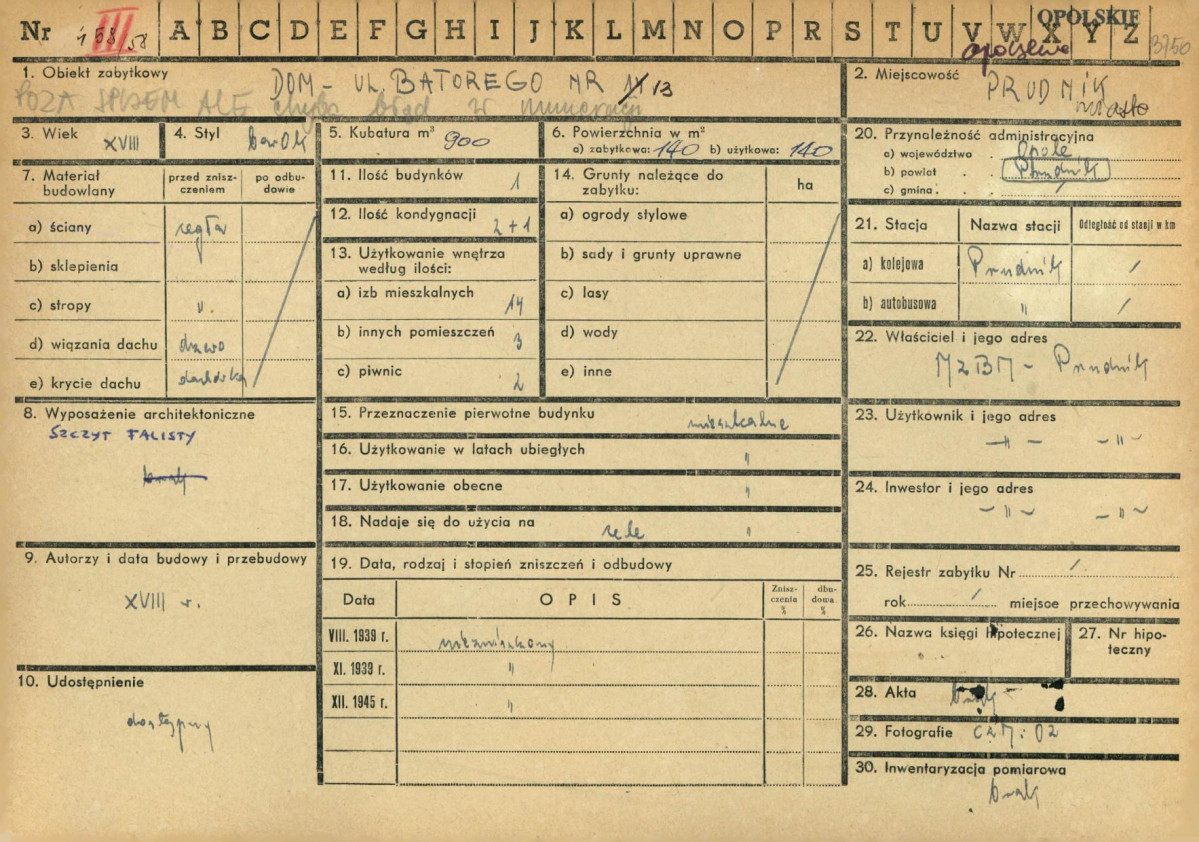 Nr 158 III 58 A B C D E F G H I J K L M N O P R S T U V W X Y Z OPOLSKIE
opolskie 3750
1. Obiekt zabytkowy DOM - UL. BATOREGO NR 13
POZA SPISEM ALE chyba błąd w numeracji
2. Miejscowość PRUDNIK
miasto
3. Wiek XVIII
4. Styl barok
5. Kubatura m³ 900
6. Powierzchnia w m²
a) zabytkowa: 140 b) użytkowa: 140
7. Materiał budowlany
przed zniszczeniem
po odbudowie
a) ściany cegła
b) sklepienia
c) stropy
d) wiązania dachu drzewo
e) krycie dachu dachówka
8. Wyposażenie architektoniczne
SZCZYT FALISTY
brak
9. Autorzy i data budowy i przebudowy
XVIII w.
10. Udostępnienie
dostępny
11. Ilość budynków 1
12. Ilość kondygnacji
2+1
13. Użytkowanie wnętrza
według ilości:
a) izb mieszkalnych 14
b) innych pomieszczeń 3
c) piwnic 2
14. Grunty należące do
zabytku:
ha
a) ogrody stylowe
b) sady i grunty uprawne
c) lasy
d) wody
e) inne
15. Przeznaczenie pierwotne budynku mieszkalne
16. Użytkowanie w latach ubiegłych "
17. Użytkowanie obecne "
18. Nadaje się do użycia na cele "
19. Data, rodzaj i stopień zniszczeń i odbudowy
Data OPIS Zniszczenia % dbudowa %
VIII. 1939 r. niezniszczony
XI. 1939 r. "
XII. 1945 r. "
20. Przynależność administracyjna
a) województwo Opole
b) powiat Prudnik
c) gmina /
21. Stacja Nazwa stacji Odległość od stacji w km
a) kolejowa Prudnik /
b) autobusowa " /
22. Właściciel i jego adres
MZBM - Prudnik
23. Użytkownik i jego adres
- " - - " -
24. Inwestor i jego adres
- " - - " -
25. Rejestr zabytku Nr /
rok / miejsce przechowywania
26. Nazwa księgi hipotecznej
27. Nr hipoteczny
28. Akta brak
29. Fotografie CZM: 02
30. Inwentaryzacja pomiarowa
brak